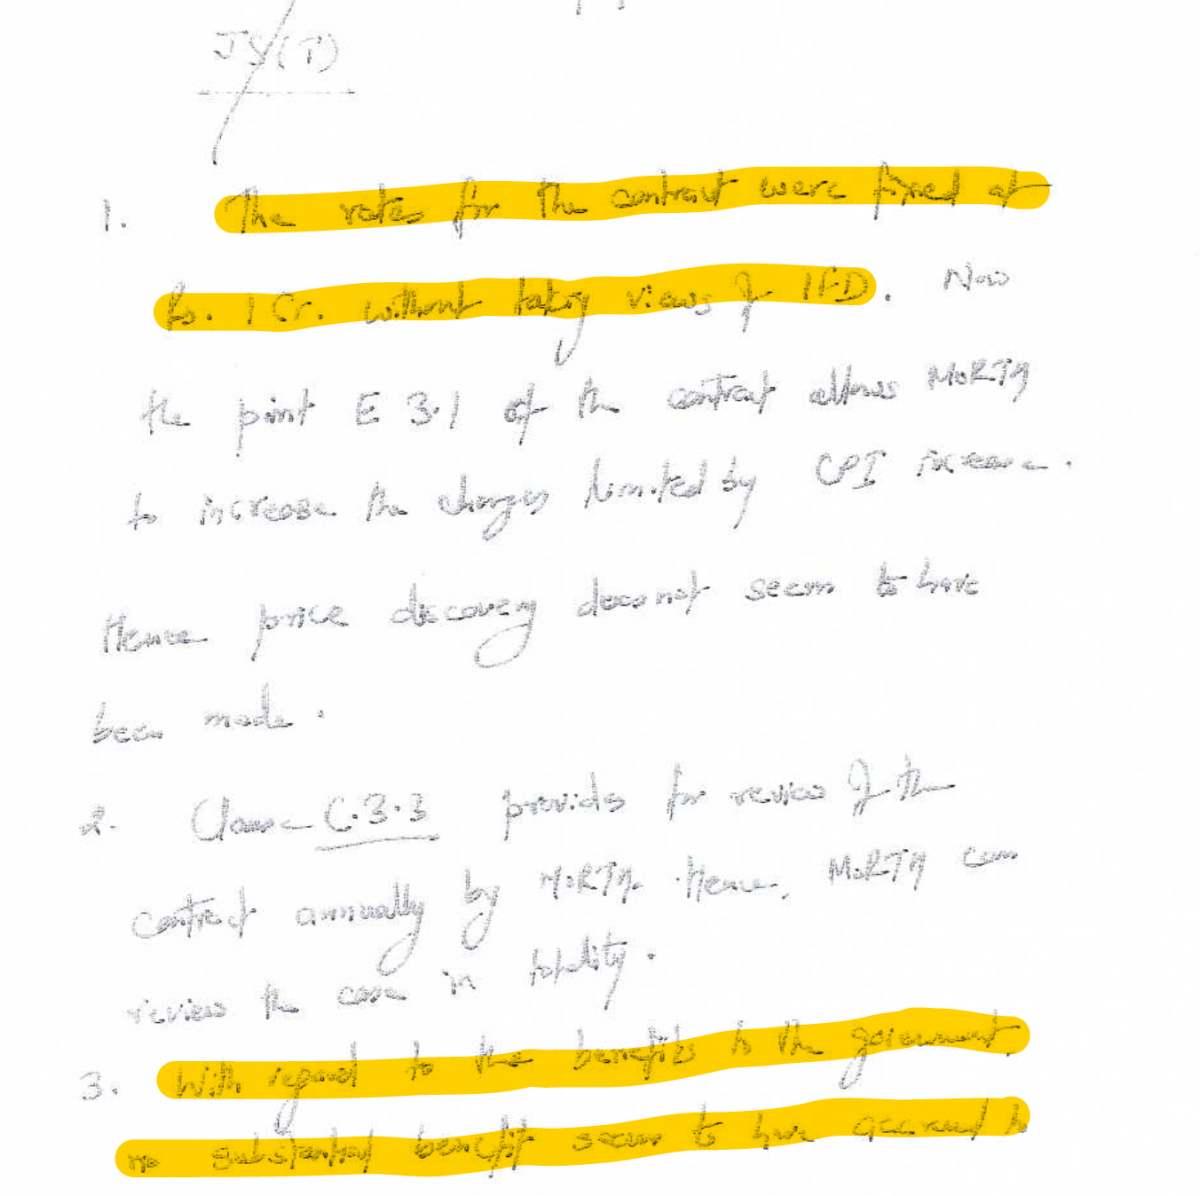 JS(T)
1. The rates for the contract were fixed at
Rs. 1 Cr. without taking views of IFD. Now
the point E 3.1 of the contract allows MoRTH
to increase the charges limited by CPI increase.
Hence price discovery does not seem to have
been made.
2. Clause C.3.3 provides for review of the
contract annually by MoRTH. Hence, MoRTH can
review the case in totality.
3. With regard to the benefits to the government,
no substantial benefit seems to have accrued to